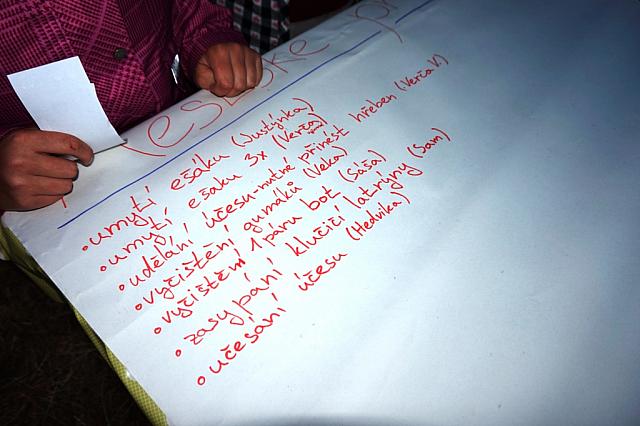 • umytí ešáku (Justýnka)
• umytí ešáku 3x (Verča)
• udělání účesu - nutné přinést hřeben (Verča V)
• vyčištění gumáků (Veka)
• vyčištění 1 páru bot (Sáša)
• zasypání klučičí latríny (Sam)
• učesání účesu (Hedvika)